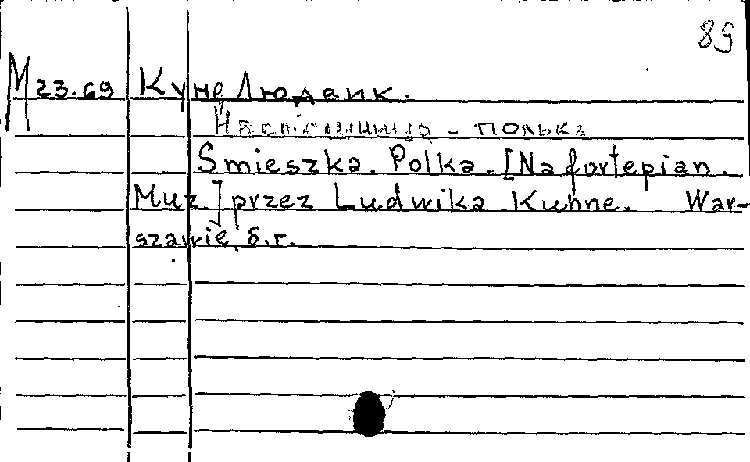 89
М 23.69 Куне Людвик.
- полька
Smieszka. Polka. [Na fortepian.
Muz.] przez Ludwika Kuhne. War-
szawie, б.г.